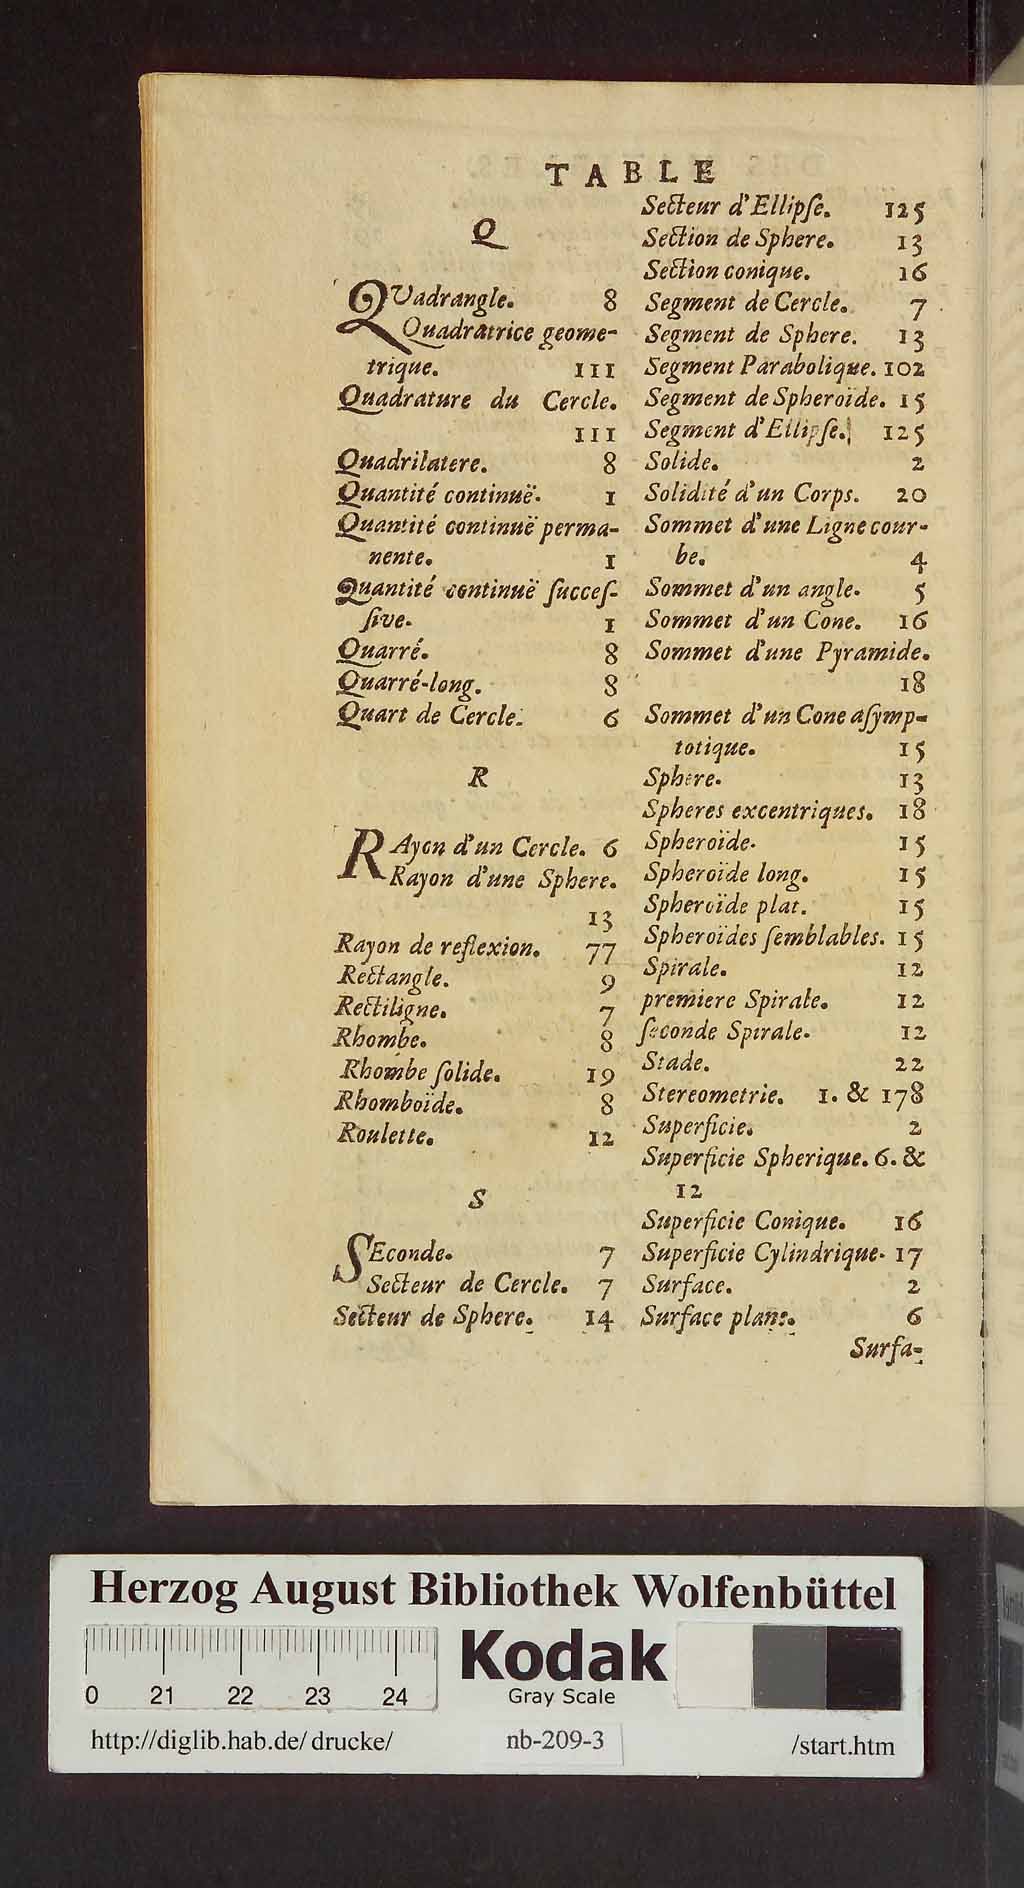 TABLE
Q
QVadrangle. 8
Quadratrice geome-
trique. 111
Quadrature du Cercle.
111
Quadrilatere. 8
Quantité continuë. 1
Quantité continuë perma-
nente. 1
Quantité continuë succes-
sive. 1
Quarré. 8
Quarré-long. 8
Quart de Cercle. 6
R
RAyon d'un Cercle. 6
Rayon d'une Sphere.
13
Rayon de reflexion. 77
Rectangle. 9
Rectiligne. 7
Rhombe. 8
Rhombe solide. 19
Rhomboïde. 8
Roulette. 12
S
SEconde. 7
Secteur de Cercle. 7
Secteur de Sphere. 14
Secteur d'Ellipse. 125
Section de Sphere. 13
Section conique. 16
Segment de Cercle. 7
Segment de Sphere. 13
Segment Parabolique. 102
Segment de Spheroïde. 15
Segment d'Ellipse. 125
Solide. 2
Solidité d'un Corps. 20
Sommet d'une Ligne cour-
be. 4
Sommet d'un angle. 5
Sommet d'un Cone. 16
Sommet d'une Pyramide.
18
Sommet d'un Cone asymp-
totique. 15
Sphere. 13
Spheres excentriques. 18
Spheroïde. 15
Spheroïde long. 15
Spheroïde plat. 15
Spheroïdes semblables. 15
Spirale. 12
premiere Spirale. 12
seconde Spirale. 12
Stade. 22
Stereometrie. 1. & 178
Superficie. 2
Superficie Spherique. 6. &
12
Superficie Conique. 16
Superficie Cylindrique. 17
Surface. 2
Surface plane. 6
Surfa-
Herzog August Bibliothek Wolfenbüttel
0 21 22 23 24
Kodak
Gray Scale
http://diglib.hab.de/drucke/ nb-209-3 /start.htm